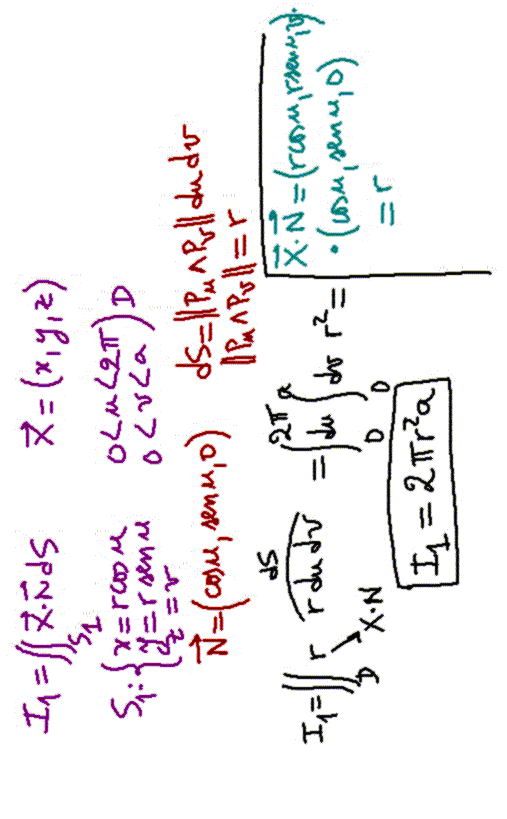 I₁ = ∬_{S₁} X⃗·N⃗ dS    X⃗ = (x, y, z)
S₁: { x = r cos u    0 < u < 2π ) D
y = r sen u    0 < v < a
z = v
N⃗ = (cos u, sen u, 0)    dS = ‖P_u ∧ P_v‖ du dv
‖P_u ∧ P_v‖ = r
X⃗·N⃗ = (r cos u, r sen u, v)·
·(cos u, sen u, 0)
= r
dS
I₁ = ∬_D r r du dv = ∫₀^{2π} du ∫₀^a dv r² =
X·N
I₁ = 2πr²a